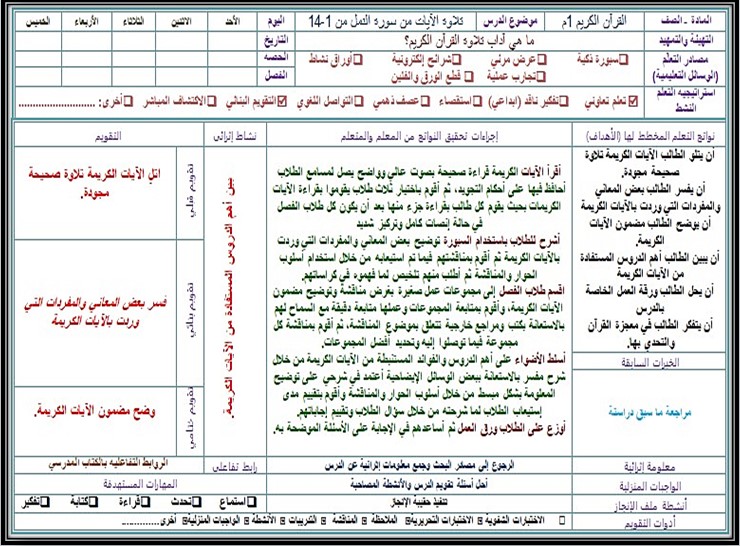 المادة ـ الصف
القرآن الكريم 1م
موضوع الدرس
تلاوة الآيات من سورة النمل من 1-14
اليوم
الأحد
الاثنين
الثلاثاء
الأربعاء
الخميس
التهيئة والتمهيد
ما هي آداب تلاوة القرآن الكريم؟
التاريخ
مصادر التعلم
(الوسائل التعليمية)
سبورة ذكية
عرض مرئي
شرائح إلكترونية
أوراق نشاط
الحصه
تجارب عملية
قطع الورق والفلين
الفصل
استراتيجيه التعلم
النشط
تعلم تعاوني
تفكير ناقد (ابداعي)
استقصاء
عصف ذهني
التواصل اللغوي
التقويم البنائي
الاكتشاف المباشر
أخرى: ........................
نواتج التعلم المخطط لها (الأهداف)
إجراءات تحقيق النواتج من المعلم والمتعلم
نشاط إثرائي
التقويم
أن يتلو الطالب الآيات الكريمة تلاوة
صحيحة مجودة.
أن يفسر الطالب بعض المعاني
والمفردات التي وردت بالآيات الكريمة
أن يوضح الطالب مضمون الآيات
الكريمة.
أن يبين الطالب أهم الدروس المستفادة
من الآيات الكريمة
أن يحل الطالب ورقة العمل الخاصة
بالدرس
أن يتفكر الطالب في معجزة القرآن
والتحدي بها.
الخبرات السابقة
مراجعة ما سبق دراستة
أقرأ الآيات الكريمة قراءة صحيحة بصوت عالي وواضح يصل لمسامع الطلاب
أحافظ فيها على أحكام التجويد، ثم أقوم باختيار ثلاث طلاب يقوموا بقراءة الآيات
الكريمات بحيث يقوم كل طالب بقراءة جزء منها بعد أن يكون كل طلاب الفصل
في حالة إنصات كامل وتركيز شديد
أشرح للطلاب باستخدام السبورة توضيح بعض المعاني والمفردات التي وردت
بالآيات الكريمة ثم أقوم بمناقشتهم فيما تم استيعابه من خلال استخدام أسلوب
الحوار والمناقشة ثم أطلب منهم تلخيص لما فهموه في كراساتهم.
اقسم طلاب الفصل إلى مجموعات عمل صغيرة بغرض مناقشة وتوضيح مضمون
الآيات الكريمة، وأقوم بمتابعة المجموعات وعملها متابعة دقيقة مع السماح لهم
بالاستعانة بكتب ومراجع خارجية تتعلق بموضوع المناقشة، ثم أقوم بمناقشة كل
مجموعة فيما توصلوا إليه وتحديد أفضل المجموعات.
أسلط الأضواء على أهم الدروس والفوائد المستنبطة من الآيات الكريمة من خلال
شرح مفسر بالاستعانة ببعض الوسائل الإيضاحية أعتمد في شرحي على توضيح
المعلومة بشكل مبسط من خلال أسلوب الحوار والمناقشة وأقوم بتقييم مدى
إستيعاب الطلاب لما شرحته من خلال سؤال الطلاب وتقييم إجاباتهم.
أوزع على الطلاب ورق العمل ثم أساعدهم في الإجابة على الأسئلة الموضحة به.
بين أهم الدروس المستفادة من الآيات الكريمة.
تقويم قبلي
اتل الآيات الكريمة تلاوة صحيحة
مجودة.
تقويم بنائي
فسر بعض المعاني والمفردات التي
وردت بالآيات الكريمة
تقويم ختامي
وضح مضمون الآيات الكريمة.
معلومة إثرائية
الرجوع إلى مصادر البحث وجمع معلومات إثرائية عن الدرس
رابط تفاعلي
الروابط التفاعليه بالكتاب المدرسي
الواجبات المنزلية
أحل أسئلة تقويم الدرس والأنشطة المصاحبة
المهارات المستهدفة
أنشطة ملف الإنجاز
تنفيذ حقيبة الإنجاز
استماع
تحدث
قراءة
كتابة
تفكير
أدوات التقويم
الاختبارات الشفوية
الاختبارات التحريرية
الملاحظة
المناقشة
التدريبات
الأنشطة
الواجبات المنزلية
أخرى..............